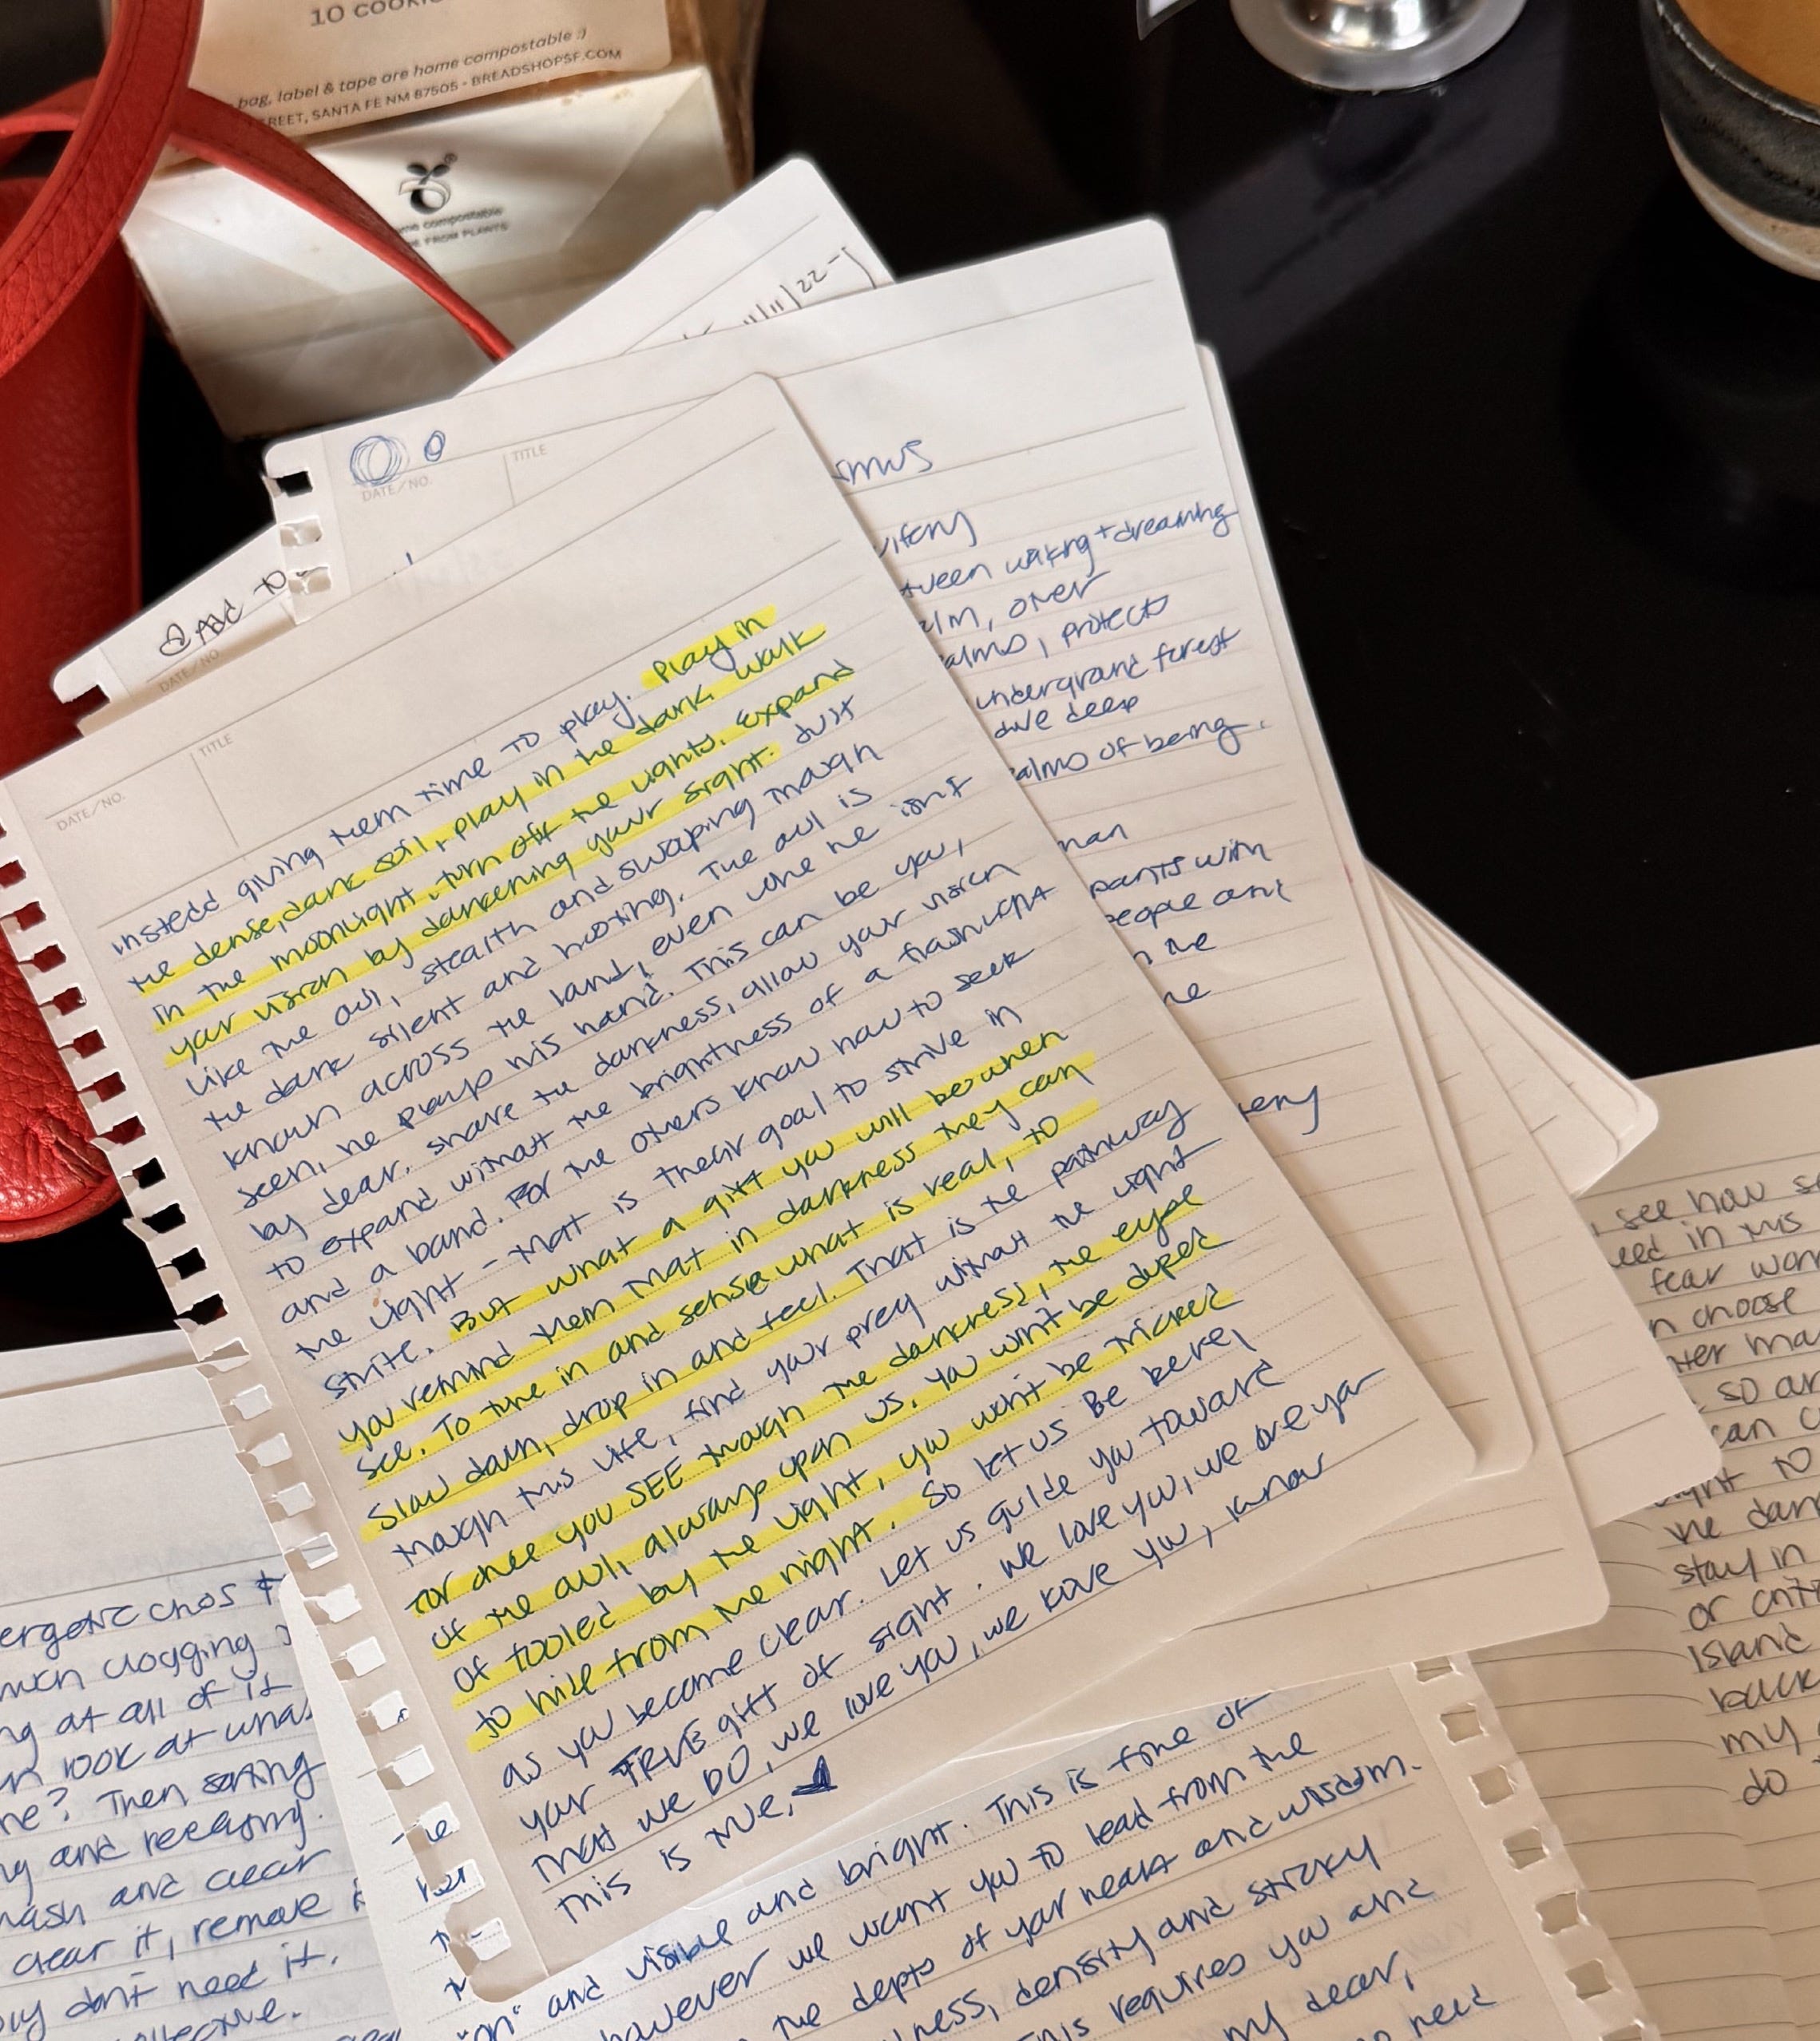 10 COOKI
bag, label & tape are home compostable :)
REET, SANTA FE NM 87505 - BREADSHOPSF.COM
me compostable
FROM PLANTS
11/22-
DATE/NO.
TITLE
ADD TO
DATE/NO
TITLE
DATE/NO.
instead giving them time to play. Play in
the dense, dark soil, play in the dark. Walk
in the moonlight, turn off the lights. Expand
your vision by darkening your sight. Just
like the owl, stealth and swooping through
the dark silent and hooting. The owl is
known across the land, even while he isn't
seen, he plays his hand. This can be you,
my dear. Share the darkness, allow your vision
to expand without the brightness of a flashlight
and a band. For the others know how to seek
the light - that is their goal to strive in
strife. But what a gift you will be when
you remind them that in darkness they can
see. To tune in and sense what is real, to
slow down, drop in and feel. That is the pathway
through this life, find your prey without the light
for once you SEE through the darkness, the eyes
of the owl, always upon us, you won't be duped
or fooled by the light, you won't be tricked
to hide from the night. So let us Be here,
as you become clear. Let us guide you toward
your TRUE gift of sight. We love you, we love you
that we DO, we love you, we love you, know
this is true.
tween waking + dreaming
alm, over
alms, protects
underground forest
dive deep
alms of being.
man
pants with
people and
n the
he
see how
eed in this
fear wor
n choose
ter ma
so ar
can
ght to
he dar
stay in
or
Island
back
my
do
ergetic chaos
much clogging
ng at all of it
n look at what
ne? Then sorting
ng and
and clear
clear it, remove
ey don't need it.
ollective.
"on" and visible and bright. This is fine or
however we want you to lead from the
the depts of your heart and wisdom.
ness, density and sticky
This requires you and
my dear,
need